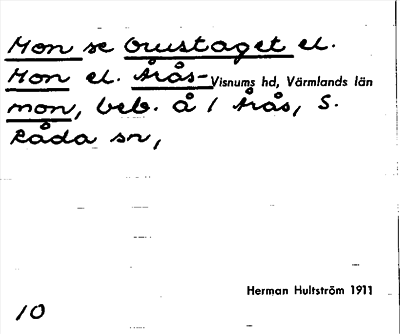 Mon se Orustaget el.
Mon el. Årås-Visnums hd, Värmlands län
mon, beb. å / Årås, S.
Råda sn,
Herman Hultström 1911
10